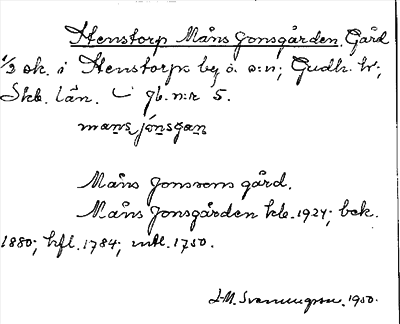 Stenstorp Måns Jonsgården. Gård
1/3 sk. i Stenstorps by o. s:n; Gudh. hr;
Skb. län. gb. n:r 5.
mans jonsgan
Måns Jonssons gård.
Måns Jonsgården kb. 1924; bek.
1880; hfl. 1784; mtl. 1750.
1950.